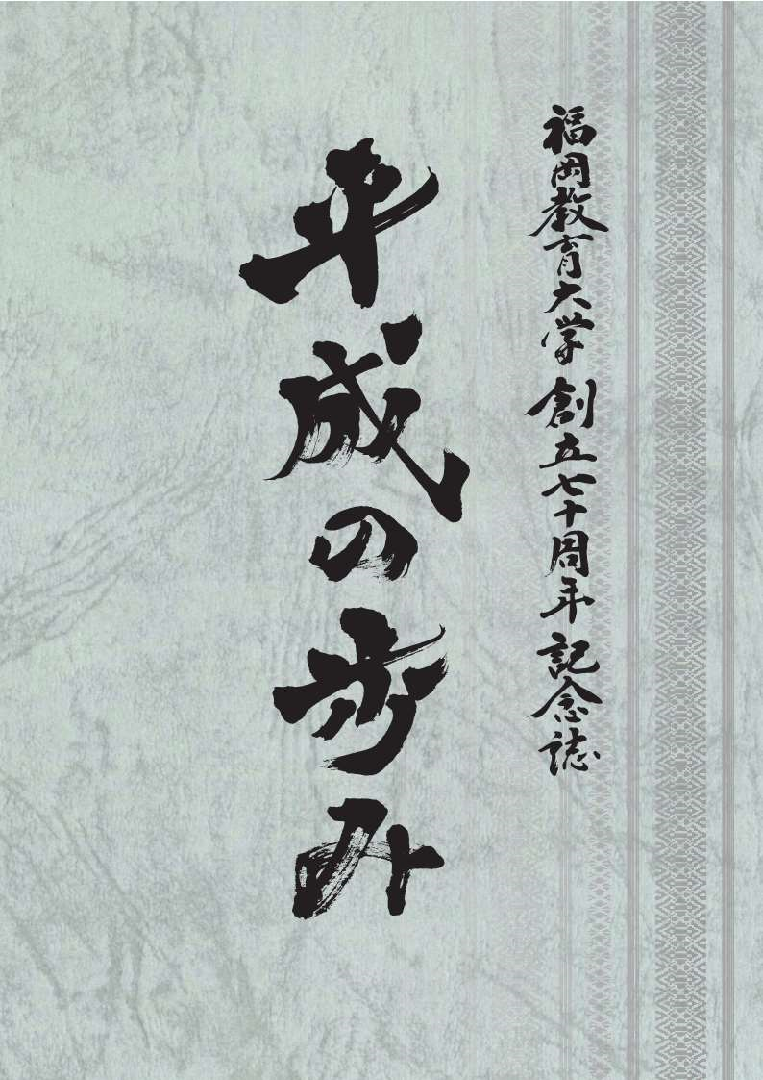 福岡教育大学創立七十周年記念誌
平成の歩み